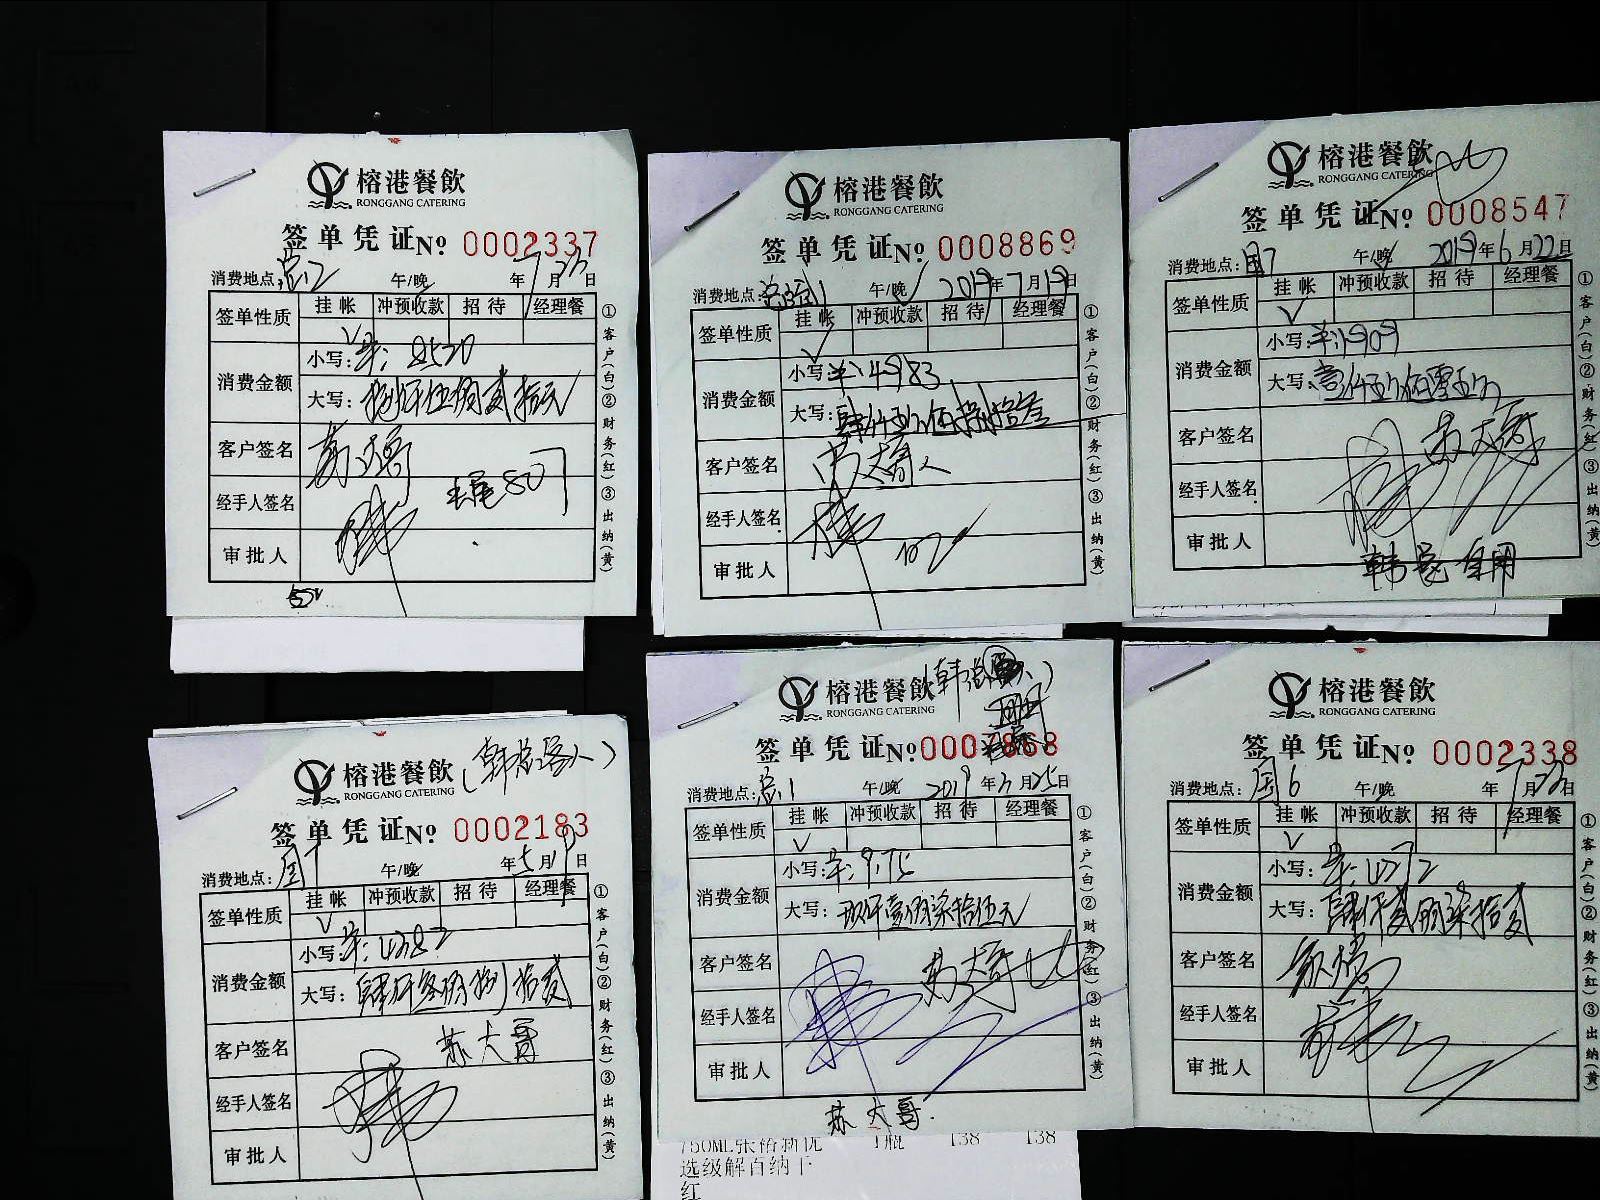 榕港餐飲
RONGGANG CATERING
签单凭证 No 0002337
消费地点: 总2 午/晚 年7月23日
签单性质 挂帐 冲预收款 招待 经理餐
√
消费金额 小写: 8520
大写: 捌仟伍佰贰拾元
客户签名
经手人签名
审批人
①客户(白)②财务(红)③出纳(黄)
榕港餐飲
RONGGANG CATERING
签单凭证 No 0008869
消费地点: 午/晚√ 2019年7月19日
签单性质 挂帐 冲预收款 招待 经理餐
√
消费金额 小写: 4983
大写:
客户签名
经手人签名
审批人
①客户(白)②财务(红)③出纳(黄)
榕港餐飲
RONGGANG CATERING
签单凭证 No 0008547
消费地点: 国7 午/晚 2019年6月22日
签单性质 挂帐 冲预收款 招待 经理餐
√
消费金额 小写: 1909
大写:
客户签名 苏大哥
经手人签名
审批人
韩总自用
①客户(白)②财务(红)③出纳(黄)
榕港餐飲 (韩总客人)
RONGGANG CATERING
签单凭证 No 0002183
消费地点: 午/晚 年5月19日
签单性质 挂帐 冲预收款 招待 经理餐
√
消费金额 小写: 4382
大写: 肆仟叁佰捌拾贰
客户签名 苏大哥
经手人签名
审批人
①客户(白)②财务(红)③出纳(黄)
榕港餐飲
RONGGANG CATERING
签单凭证 No
消费地点: 总1 午/晚 2019年 月25日
签单性质 挂帐 冲预收款 招待 经理餐
√
消费金额 小写: 9175
大写: 玖仟壹佰柒拾伍元
客户签名 苏大哥
经手人签名
审批人
苏大哥
①客户(白)②财务(红)③出纳(黄)
750ML张裕新优 1瓶 138 138
选级解百纳干
红
榕港餐飲
RONGGANG CATERING
签单凭证 No 0002338
消费地点: 国6 午/晚 年7月23日
签单性质 挂帐 冲预收款 招待 经理餐
√
消费金额 小写: 4272
大写: 肆仟贰佰柒拾贰
客户签名
经手人签名
审批人
①客户(白)②财务(红)③出纳(黄)